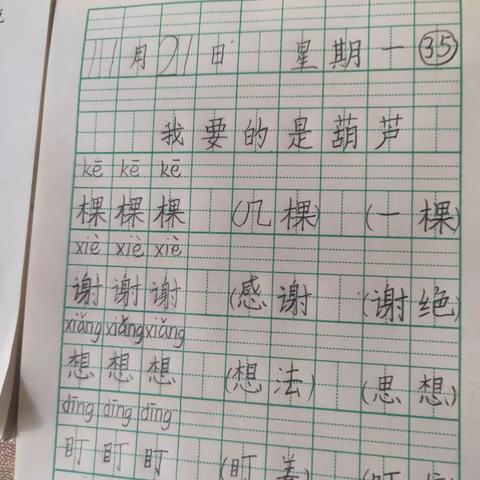 11月21日 星期一 35
我要的是葫芦
kē kē kē
棵棵棵 (几棵) (一棵)
xiè xiè xiè
谢谢谢 (感谢) (谢绝)
xiǎng xiǎng xiǎng
想想想 (想法) (思想)
dīng dīng dīng
盯盯盯 (盯着) (盯